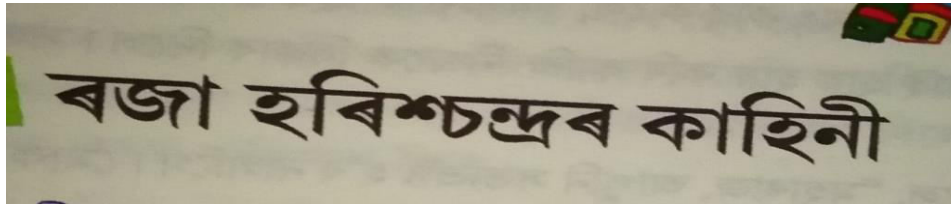 ৰজা হৰিশ্চন্দ্ৰৰ কাহিনী